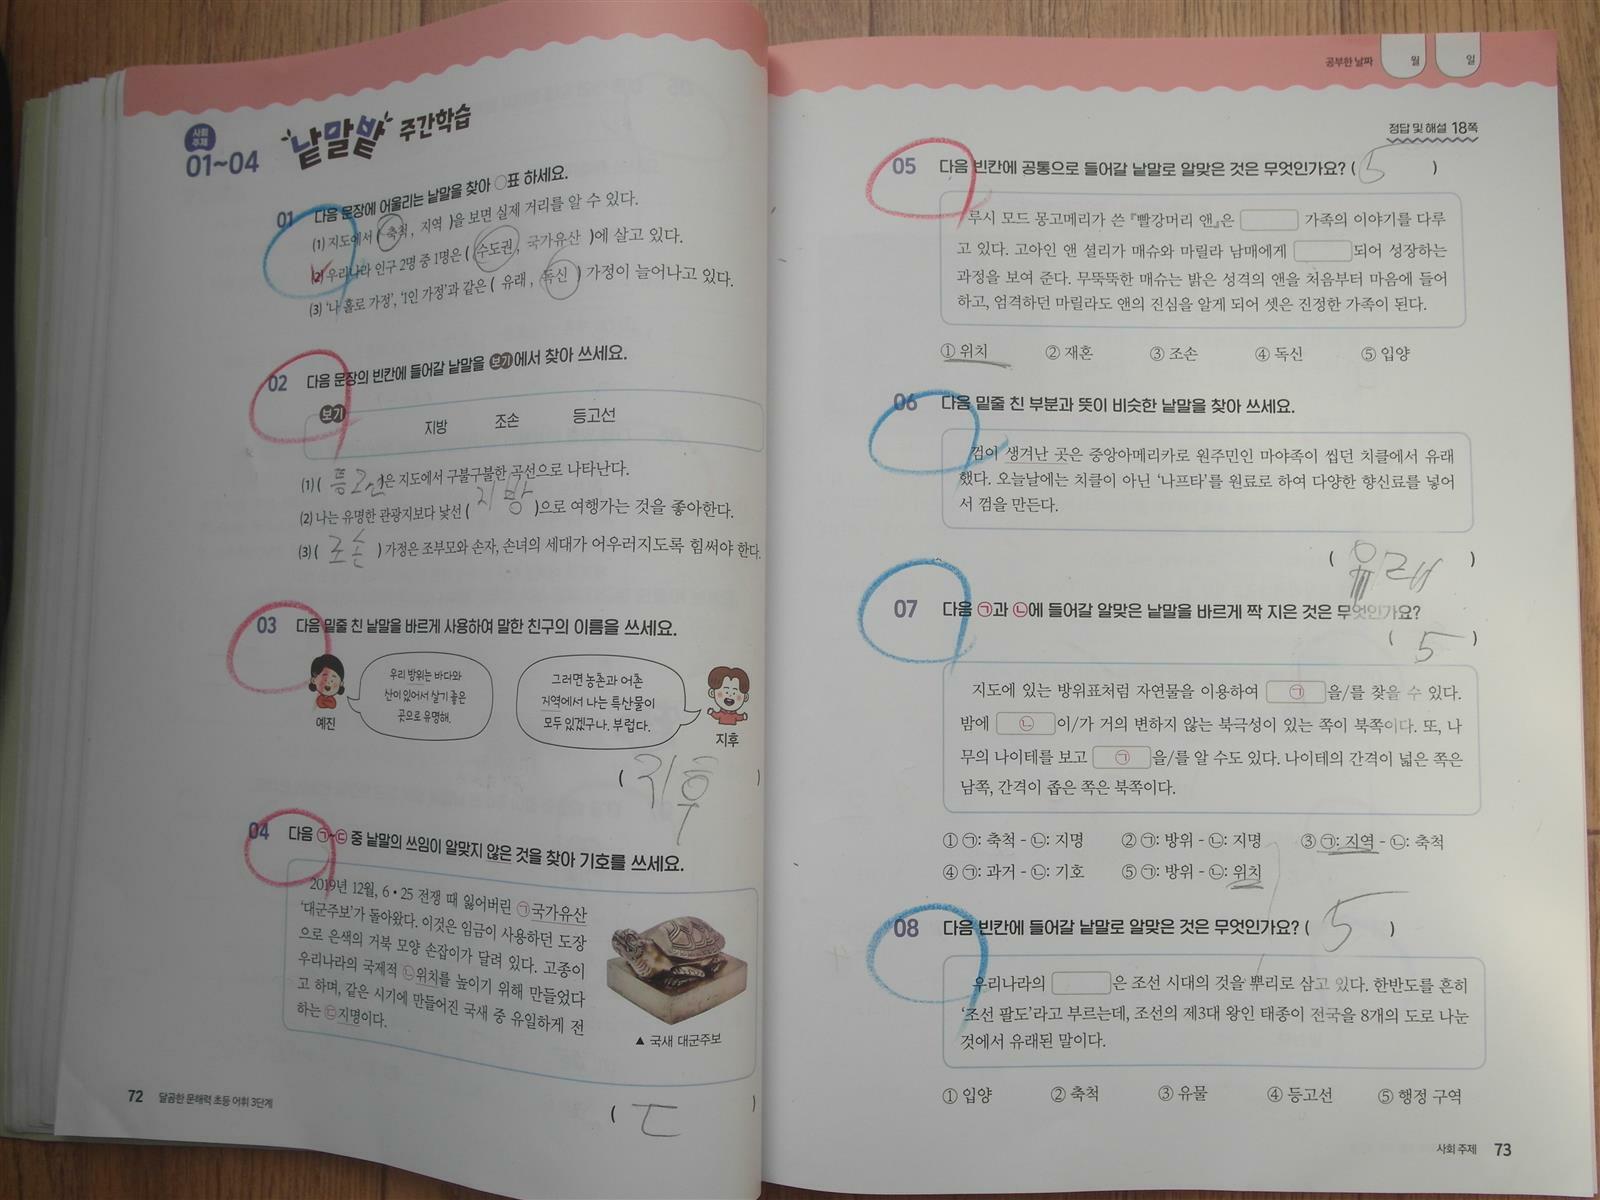 사회 주제
01~04
낱말밭 주간학습
01 다음 문장에 어울리는 낱말을 찾아 ○표 하세요.
(1) 지도에서 ( 축척, 지역 )을 보면 실제 거리를 알 수 있다.
(2) 우리나라 인구 2명 중 1명은 ( 수도권, 국가유산 )에 살고 있다.
(3) '나 홀로 가정', '1인 가정'과 같은 ( 유래, 독신 ) 가정이 늘어나고 있다.
02 다음 문장의 빈칸에 들어갈 낱말을 보기에서 찾아 쓰세요.
보기
지방 조손 등고선
(1) ( 등고선 )은 지도에서 구불구불한 곡선으로 나타난다.
(2) 나는 유명한 관광지보다 낯선 ( 지방 )으로 여행가는 것을 좋아한다.
(3) ( 조손 ) 가정은 조부모와 손자, 손녀의 세대가 어우러지도록 힘써야 한다.
03 다음 밑줄 친 낱말을 바르게 사용하여 말한 친구의 이름을 쓰세요.
우리 방위는 바다와
산이 있어서 살기 좋은
곳으로 유명해.
예진
그러면 농촌과 어촌
지역에서 나는 특산물이
모두 있겠구나. 부럽다.
지후
( 지후 )
04 다음 ㉠~㉢ 중 낱말의 쓰임이 알맞지 않은 것을 찾아 기호를 쓰세요.
2019년 12월, 6·25 전쟁 때 잃어버린 ㉠국가유산
'대군주보'가 돌아왔다. 이것은 임금이 사용하던 도장
으로 은색의 거북 모양 손잡이가 달려 있다. 고종이
우리나라의 국제적 ㉡위치를 높이기 위해 만들었다
고 하며, 같은 시기에 만들어진 국새 중 유일하게 전
하는 ㉢지명이다.
▲ 국새 대군주보
( ㄷ )
72 달곰한 문해력 초등 어휘 3단계
공부한 날짜 월 일
정답 및 해설 18쪽
05 다음 빈칸에 공통으로 들어갈 낱말로 알맞은 것은 무엇인가요? ( 5 )
루시 모드 몽고메리가 쓴 『빨강머리 앤』은 가족의 이야기를 다루
고 있다. 고아인 앤 셜리가 매슈와 마릴라 남매에게 되어 성장하는
과정을 보여 준다. 무뚝뚝한 매슈는 밝은 성격의 앤을 처음부터 마음에 들어
하고, 엄격하던 마릴라도 앤의 진심을 알게 되어 셋은 진정한 가족이 된다.
① 위치 ② 재혼 ③ 조손 ④ 독신 ⑤ 입양
06 다음 밑줄 친 부분과 뜻이 비슷한 낱말을 찾아 쓰세요.
껌이 생겨난 곳은 중앙아메리카로 원주민인 마야족이 씹던 치클에서 유래
했다. 오늘날에는 치클이 아닌 '나프타'를 원료로 하여 다양한 향신료를 넣어
서 껌을 만든다.
( 유래 )
07 다음 ㉠과 ㉡에 들어갈 알맞은 낱말을 바르게 짝 지은 것은 무엇인가요?
( 5 )
지도에 있는 방위표처럼 자연물을 이용하여 ㉠ 을/를 찾을 수 있다.
밤에 ㉡ 이/가 거의 변하지 않는 북극성이 있는 쪽이 북쪽이다. 또, 나
무의 나이테를 보고 ㉠ 을/를 알 수도 있다. 나이테의 간격이 넓은 쪽은
남쪽, 간격이 좁은 쪽은 북쪽이다.
① ㉠: 축척 - ㉡: 지명 ② ㉠: 방위 - ㉡: 지명 ③ ㉠: 지역 - ㉡: 축척
④ ㉠: 과거 - ㉡: 기호 ⑤ ㉠: 방위 - ㉡: 위치
08 다음 빈칸에 들어갈 낱말로 알맞은 것은 무엇인가요? ( 5 )
우리나라의 은 조선 시대의 것을 뿌리로 삼고 있다. 한반도를 흔히
'조선 팔도'라고 부르는데, 조선의 제3대 왕인 태종이 전국을 8개의 도로 나눈
것에서 유래된 말이다.
① 입양 ② 축척 ③ 유물 ④ 등고선 ⑤ 행정 구역
사회 주제 73